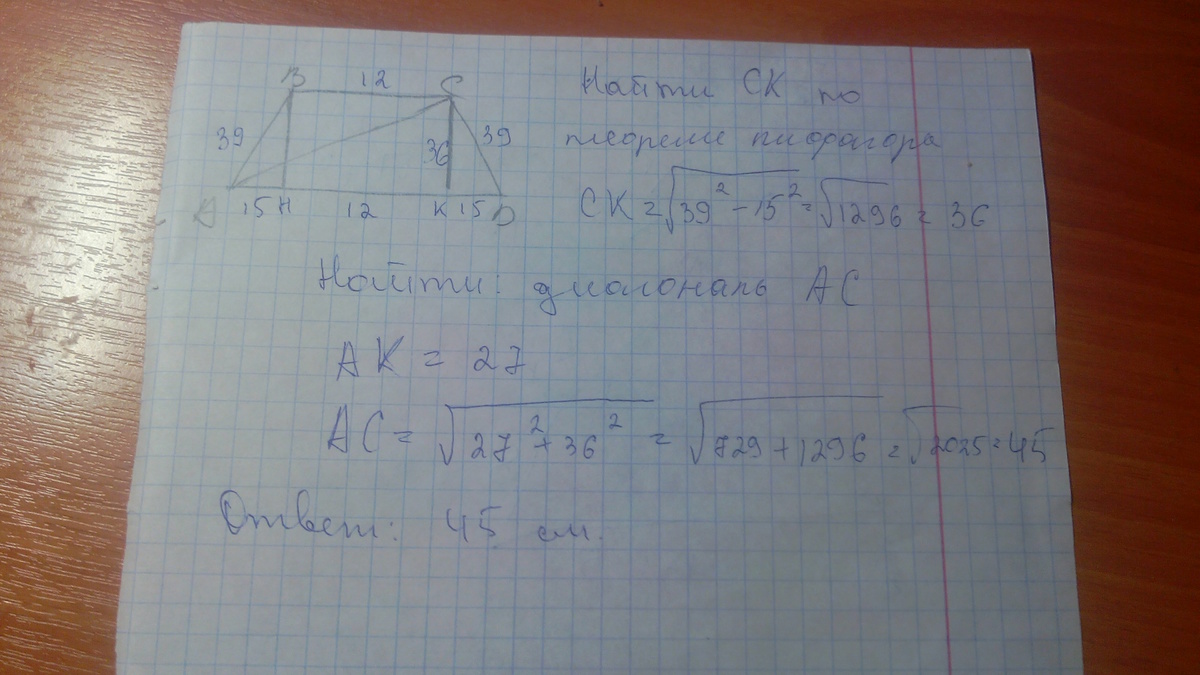 B 12 C
39 36 39
A 15 H 12 K 15 D
Найти CK по
теореме пифагора
CK = √39² - 15² = √1296 = 36
Найти: диагональ AC
AK = 27
AC = √27² + 36² = √729 + 1296 = √2025 = 45
Ответ: 45 см.